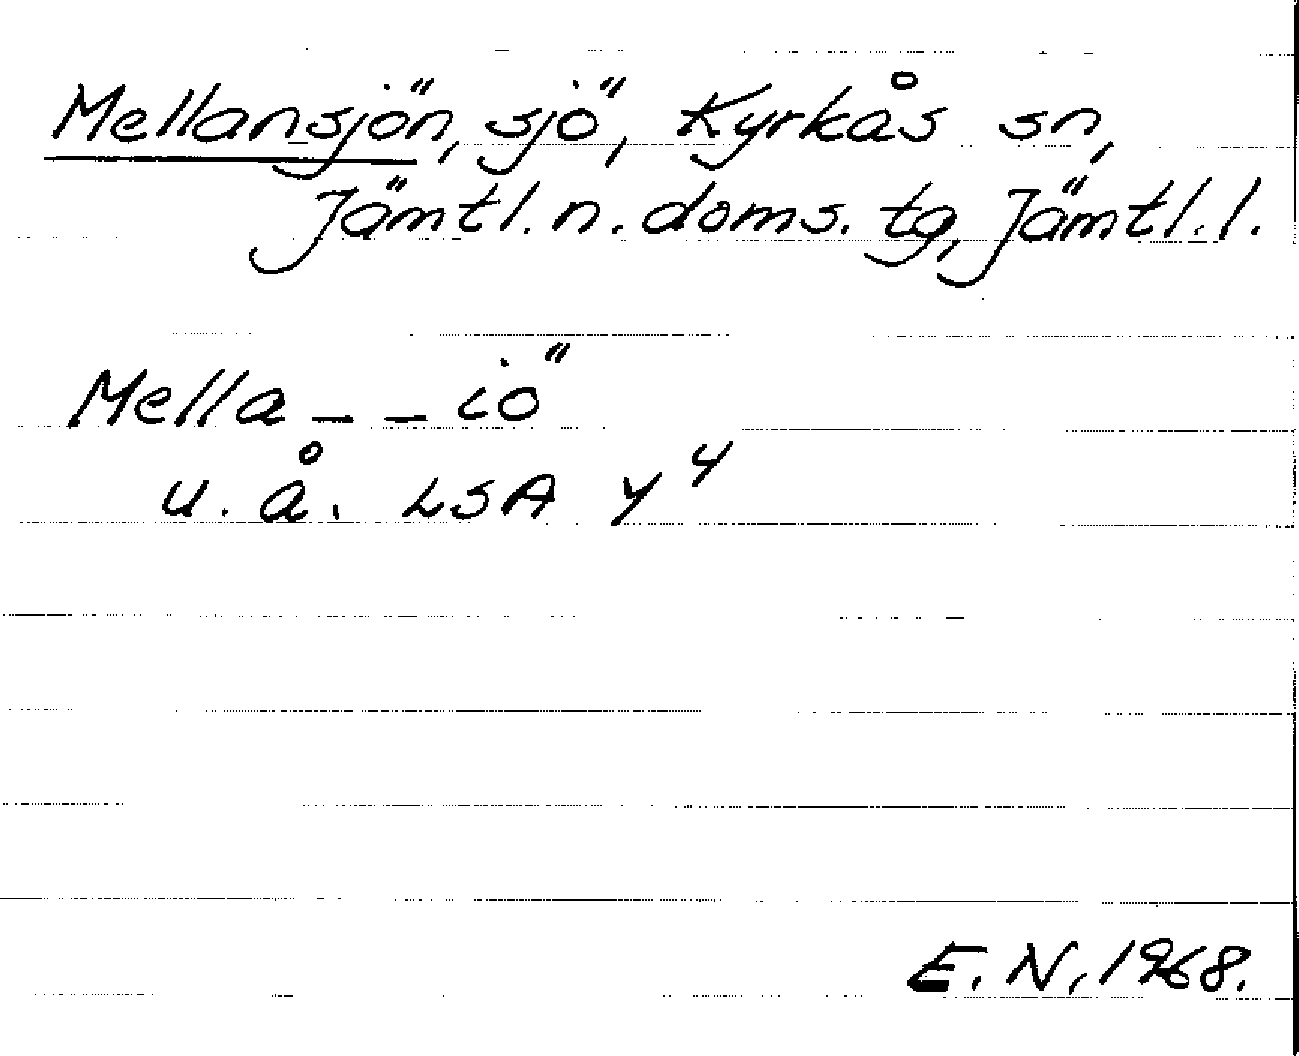 Mellansjön, sjö, Kyrkås sn,
Jämtl. n. doms. tg, Jämtl. l.
Mella _ _ iö
u. å. LSA Y 4
E. N. 1968.